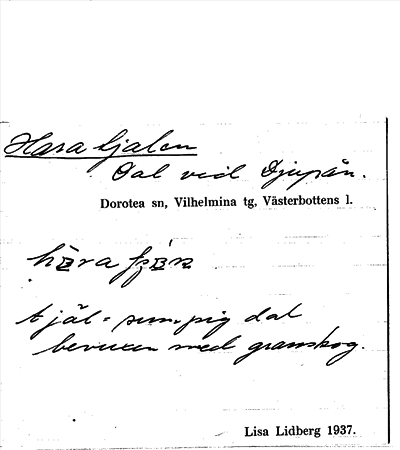 Hara tjalen
Dal vid Djupån.
Dorotea sn, Vilhelmina tg, Västerbottens l.
tjäl = sumpig dal
bevuxen med granskog.
Lisa Lidberg 1937.